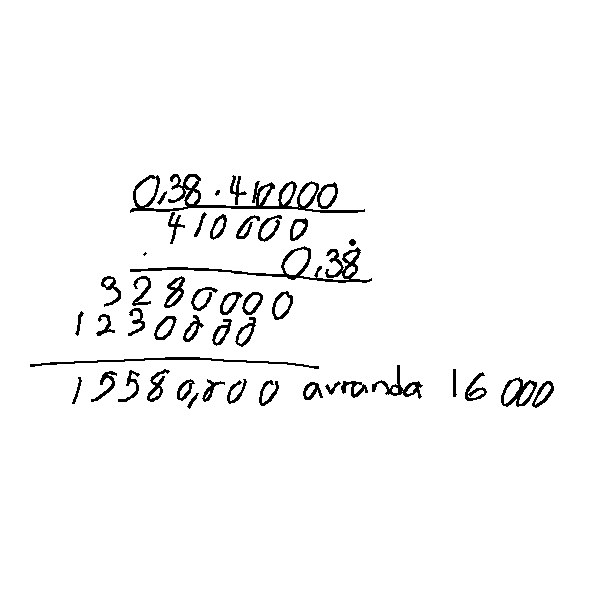 0,38 · 410000
410000
· 0,38
3280000
1230000
15580,000 avranda 16 000